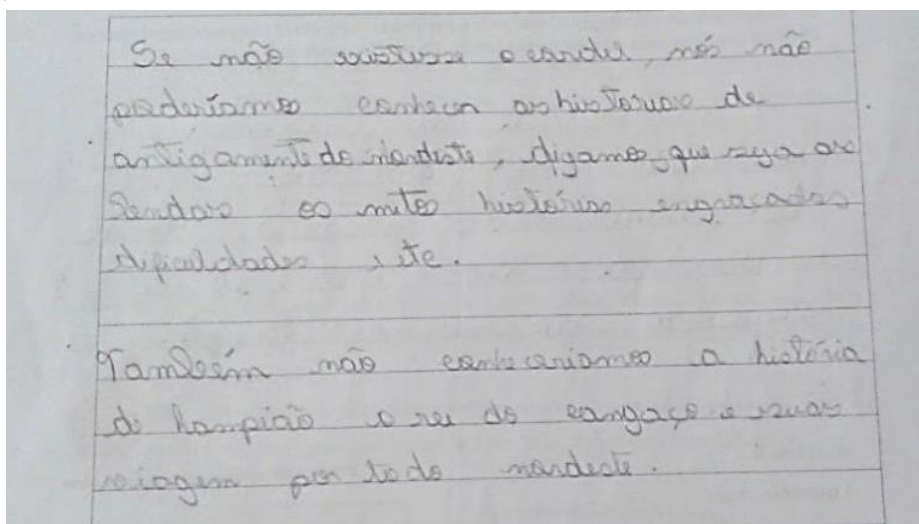 Se não existisse o cordel, nós não
poderíamos conhecer as historias de
antigamente do nordeste, digamos que seja as
lendas os mitos histórias engraçadas
dificuldades e ite.
Também não conheceriamos a história
de Lampião o rei do cangaço e suas
viagem por todo nordeste.